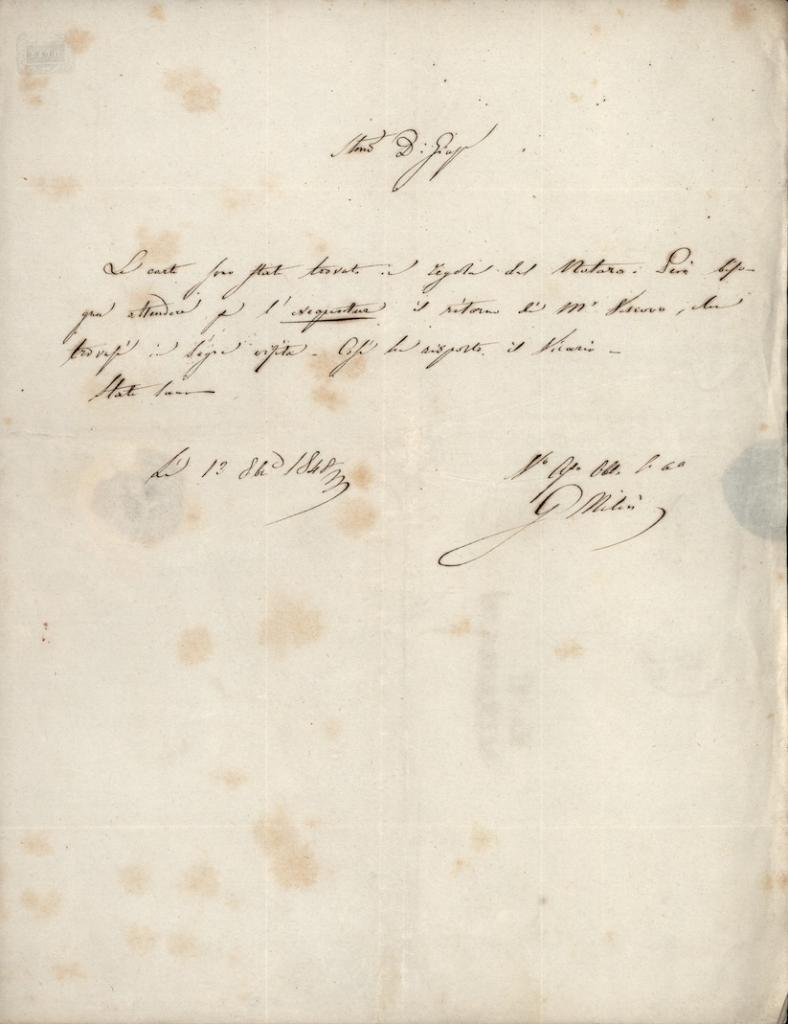 Stimo D: Giusp
Le carte sono state trovate in regola dal Notaro. Però biso-
gna attendere p l'exequatur il ritorno di Mr Vescovo, che
trovasi in Sagra visita. Così ha risposto il Vicario -
State sano
Lì 13 8bre 1848
Vo
G Milisi